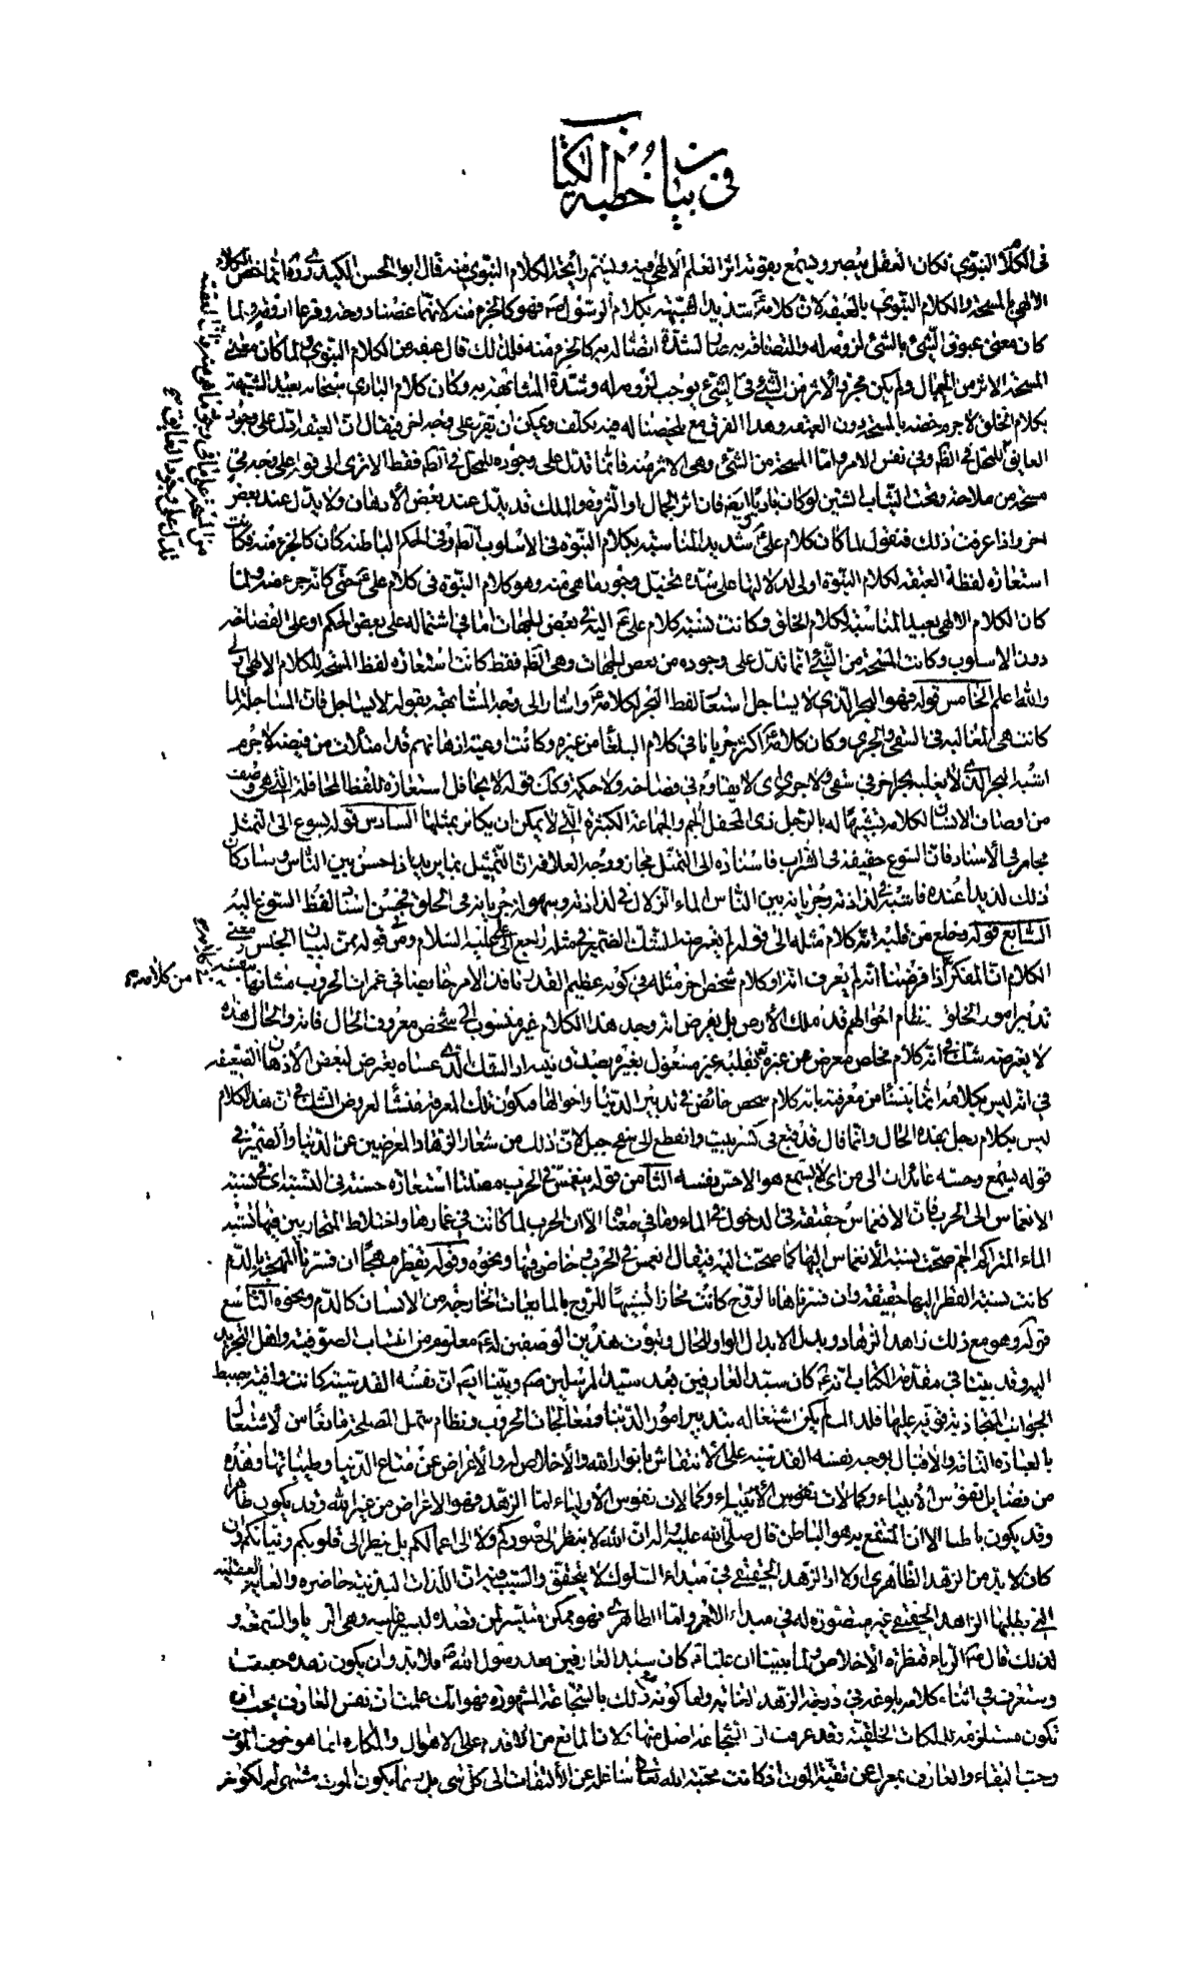 في بيان خطبة الكتاب
في الكلام النبوي فكان العقل يبصر ويسمع بقوته اثر العلم الالهي فيه ويشتم رايحة الكلام النبوي منه قال ابو الحسن الكيدري ره انما خص الكلام
الالهي بالمسحة والكلام النبوي بالعبقة لان كلامه ع شديد الشبه بكلام الرسول ص فهو كالجزء منه لانهما غصنا دوحة وفرعا ارومة لما
كان معنى عبوق الشيء بالشيء لزومه له والتصاقه به صار لشدة اتصاله به كالجزء منه فلذلك قال عبقة من الكلام النبوي ولما كان معنى
المسحة الاثر من الجمال ولم يكن مجرد الاثر من الشيء في الشيء يوجب لزومه له وشدة المشابهة به وكان كلام الباري سبحانه بعيد الشبه
بكلام الخلق لا جرم خصه بالمسحة دون العبقة وهذا الفرق مع تلخيصنا له فيه تكلف ويمكن ان يقرر على وجه اخر فيقال ان العبقة تدل على وجود
العابق للمحل في الظاهر وفي نفس الامر واما المسحة من الشيء وهي الاثر منه فانما تدل على وجوده للمحل في الظاهر فقط الا ترى الى قوله على وجه مي
مسحة من ملاحة وتحت الثياب الشين لو كان باديا فان اثر الجمال او الثروة والملك قد يدل عند بعض الاذهان ولا يدل عند بعض
اخر واذا عرفت ذلك فنقول لما كان كلام علي ع شديد المناسبة بكلام النبوة في الاسلوب الظاهر وفي الحكم الباطنة كان كالجزء منه فكانت
استعارة لفظة العبقة لكلام النبوة اولى له لدلالتها على شدة تخيل وجود ما هي منه وهو كلام النبوة في كلام علي ع حتى كانه جزء منه ولما
كان الكلام الالهي بعيد المناسبة لكلام الخلق وكانت نسبة كلام علي ع اليه في بعض الجهات اما في اشتماله على بعض الحكم او على الفصاحة
دون الاسلوب وكانت المسحة من الشيء انما تدل على وجوده من بعض الجهات وهي الظاهر فقط كانت استعارة لفظ المسحة للكلام الالهي اولى
والله اعلم الخامس قوله فهو البحر الذي لا يساجل استعار لفظ البحر لكلامه ع واشار الى وجه المشابهة بقوله لا يساجل فان المساجلة لما
كانت هي المغالبة في السقي والجري وكان كلامه ع اكثر جريانا في كلام البلغاء من غيره وكانت اوعية اذهانهم قد امتلات من فيضه لا جرم
اشبه البحر الذي لا يغلبه بحر اخر في سقي ولا جري اي لا يقاوم في فصاحة ولا حكمة وكذلك قوله لا يحافل استعارة للفظ المحافلة التي هي وصف
من اوصاف الانسان لكلامه تشبيها له بالرجل ذي المحفل الجم والجماعة الكثيرة التي لا يمكن ان يكاثر بمثلها السادس قوله يسوغ الى التمثل
مجاز في الاسناد فان السوغ حقيقة في الشراب فاسناده الى التمثل مجاز ووجه العلاقة ان التمثيل بما يريد اذا حسن بين الناس وشاركان
ذلك لذيذا عنده فاشبه في لذاذته وجريانه بين الناس الماء الزلال في لذاذته وسهولة جريانه في الحلق فحسن اسناد لفظ السوغ اليه
السابع قوله وخلع من قلبه انه كلام مثله الى قوله لم يعترضه الشك الضمير في مثله راجع الى علي عليه السلام ومن في قوله ممن لبيان الجنس ومعنى
الكلام ان المفكر اذا فرضنا انه لم يعرف انه كلام شخص اخر مثله في كونه عظيم القدر نافذ الامر خايضا في غمرات الحروب مشاركا
تدبير امور الخلق نظام احوالهم قد ملك الارض بل يفرض انه وجد هذا الكلام غير منسوب الى شخص معروف الحال فانه والحال هذه
لا يعترضه شك في انه كلام مخلص معرض عن غيره بقلبه غير مشغول بغيره
في انه ليس بكلامه انما ينشأ من معرفته بانه كلام شخص خائض في تدبير الدنيا واحوالها فيكون تلك المعرفة منشأ لعروض الشك في ان هذا الكلام
ليس بكلام رجل بهذه الحال وانما قال قد قبع في كسر بيت وانقطع الى سفح جبل لان ذلك من شعار الزهاد والمعرضين عن الدنيا والضمير في
قوله يسمع وحسه عائدان الى من اي لا يسمع هو الا حس نفسه الثامن قوله ينغمس في الحرب مصلتا استعارة حسنة في النسبة اي في نسبة
الانغماس الى الحرب فان الانغماس حقيقة في الدخول في الماء وما في معناه الا ان الحرب لما كانت في غمارها واختلاط المتحاربين فيها تشبه
الماء المتراكم الجم صحت نسبة الانغماس اليها كما صحت اليه فيقال انغمس في الحرب وخاض فيها ونحوه وقوله يقطر مهجا ان فسرنا المهجة بالدم
كانت نسبة القطر اليها حقيقة وان فسرناها بالروح كانت مجازا تشبيها للروح بالمايعات الخارجة من الانسان كالدم ونحوه التاسع
قوله وهو مع ذلك زاهد الزهاد وبدل الابدال الواو للحال وثبوت هذين الوصفين له ع معلوم من انتساب الصوفية واهل التجريد
اليه وقد بينا في مقدمة الكتاب انه ع كان سيد العارفين بعد سيد المرسلين ص وبينا ايضا ان نفسه القدسية كانت وافية بضبط
الجوانب المتجاذبة قوية عليها فلذلك لم يكن اشتغاله بتدبير امور الدنيا ومعالجات الحروب ونظام شمل المصلحة مانعا من الاشتغال
بالعبادة التامة والاقبال بوجه نفسه القدسية على الانتقاش بانوار الله والاخلاص له والاعراض عن متاع الدنيا وطيباتها وهذه
من فضايل نفوس الانبياء وكمالات نفوس الاولياء اما الزهد وهو الاعراض من غير الله وقد يكون ظاهرا
وقد يكون باطنا الا ان المنتفع به هو الباطن قال صلى الله عليه واله ان الله لا ينظر الى صوركم ولا الى اعمالكم بل ينظر الى قلوبكم ونياتكم وان
كان لا بد من الزهد الظاهري اولا اذ الزهد الحقيقي في مبداء السلوك لا يتحقق والسبب فيه ان اللذات البدنية حاضرة والغاية العقلية
التي يطلبها الزاهد الحقيقي غير متصورة له في مبداء الامر واما الظاهري فهو ممكن متيسر لمن قصده ليسر غايته وهي الرياء والسمعة و
لذلك قال ص الرياء قنطرة الاخلاص ولما بينا ان عليا ع كان سيد العارفين بعد رسول الله ص فلا بد وان يكون زهده حقيقيا
وستعرف في اثناء كلامه بلوغه في درجة الزهد الغاية واما كونه مع ذلك بالشجاعة المشهورة فهو انك علمت ان نفس العارف يجب ان
تكون مستلزمة للملكات الخلقية وقد عرفت ان الشجاعة اصل منها لان المانع من الاقدام على الاهوال والمكاره انما هو خوف الموت
وحب البقاء والعارف بمعزل عن تقية الموت اذ كانت محبة الله تعالى شاغلة عن الالتفات الى كل شيء بل ربما يكون الموت مشتهى له لكونه